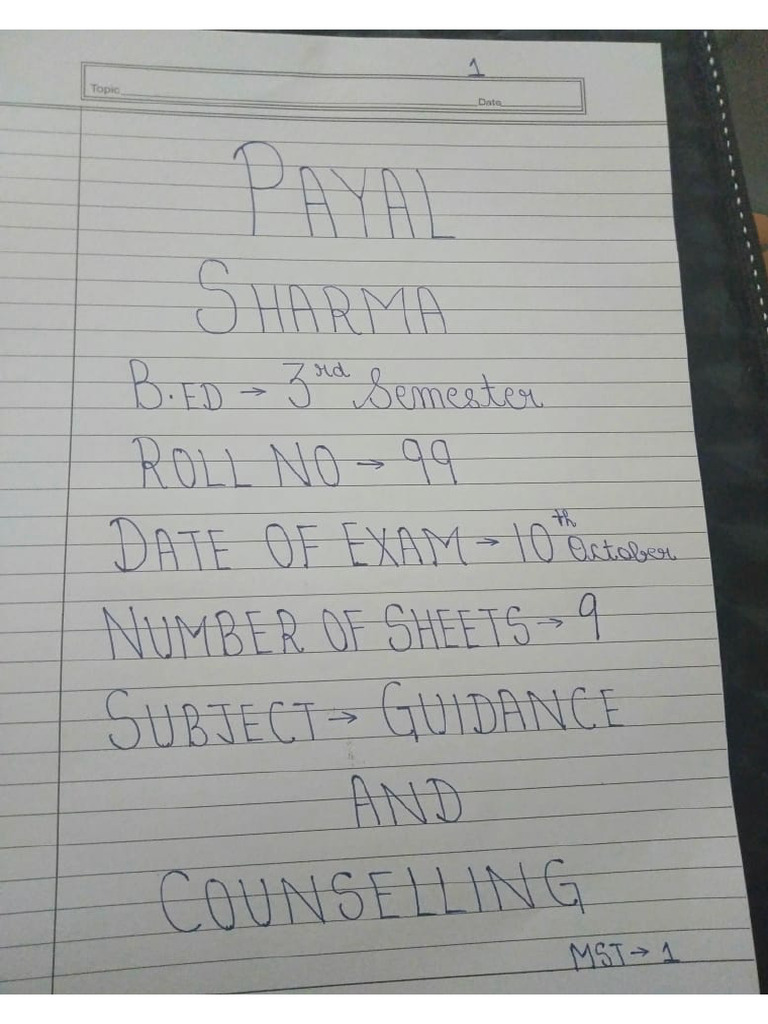 1
Topic Date
PAYAL
SHARMA
B.ED → 3rd Semester
ROLL NO → 99
DATE OF EXAM → 10th October
NUMBER OF SHEETS → 9
SUBJECT → GUIDANCE
AND
COUNSELLING
MST → 1